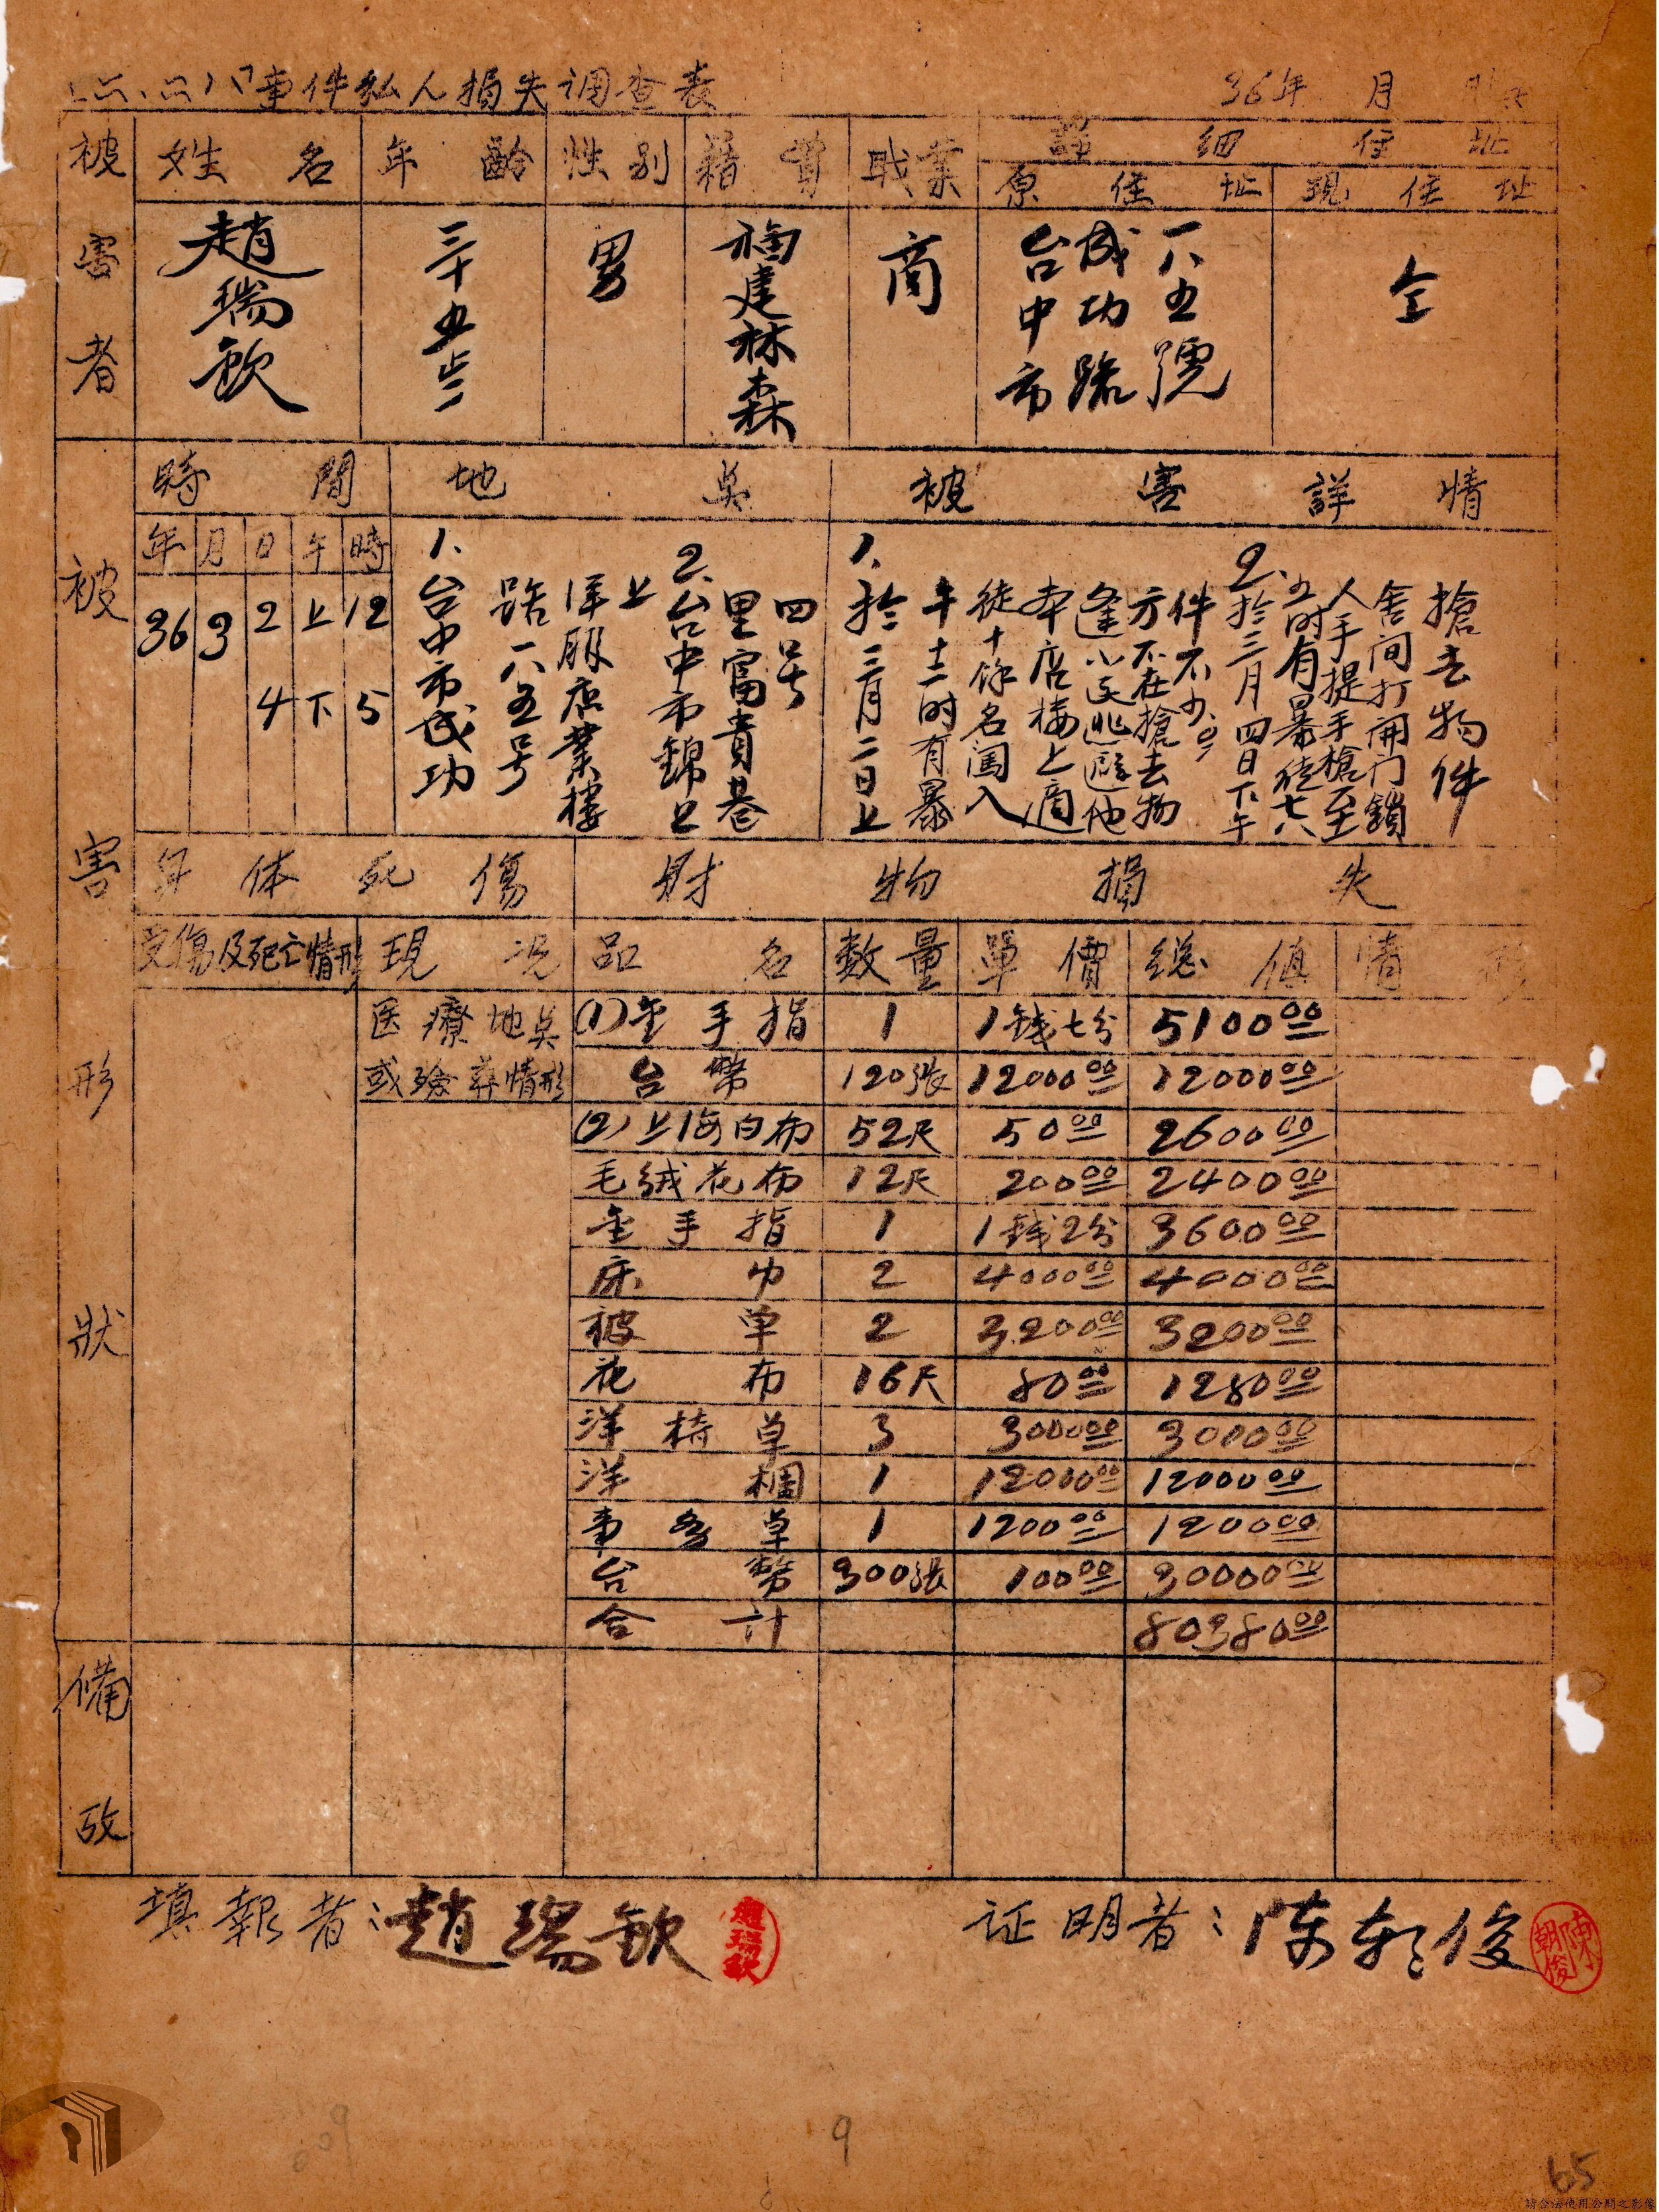 二二八事件私人損失调查表 36年 月 日
被害者 姓名 年齡 性别 籍貫 職業 詳細住址
原住址 現住址
趙瑞欽 三十五歩 男 福建林森 商 台中市成功路一八五號 仝
被害形狀 時間 地㸃 被害詳情
年 月 日 午 時
36 3 2 上 12
4 下 5
1.台中市成功
路一八五号
洋服店業樓
上
2.台中市錦上
里富貴巷
四号
1.於三月二日上
午十二时有暴
徒十馀名闯入
本店楼上適
逢小逃避他
方不在搶去物
件不少。
2.於三月四日下午
五时有暴徒七八
人手提手槍至
舍间打開门鎖
搶去物件
身体死傷 財物損失
受傷及死亡情形 現况 品名 数量 單價 総值 情形
医療地㸃 (1)金手指 1 1錢七分 5100.00
或殮葬情形 台幣 120張 12000.00 12000.00
(2)上海白布 52尺 50.00 2600.00
毛絨花布 12尺 200.00 2400.00
金手指 1 1錢2分 3600.00
床巾 2 4000.00 4000.00
被单 2 3200.00 3200.00
花布 16尺 80.00 1280.00
洋椅草 3 3000.00 3000.00
洋棝 1 12000.00 12000.00
事务草 1 1200.00 1200.00
台幣 300張 100.00 30000.00
合計 80380.00
備攷
填報者：趙瑞欽 趙瑞欽
证明者：陈朝俊 陳朝俊
9
65
請合法使用公開之影像